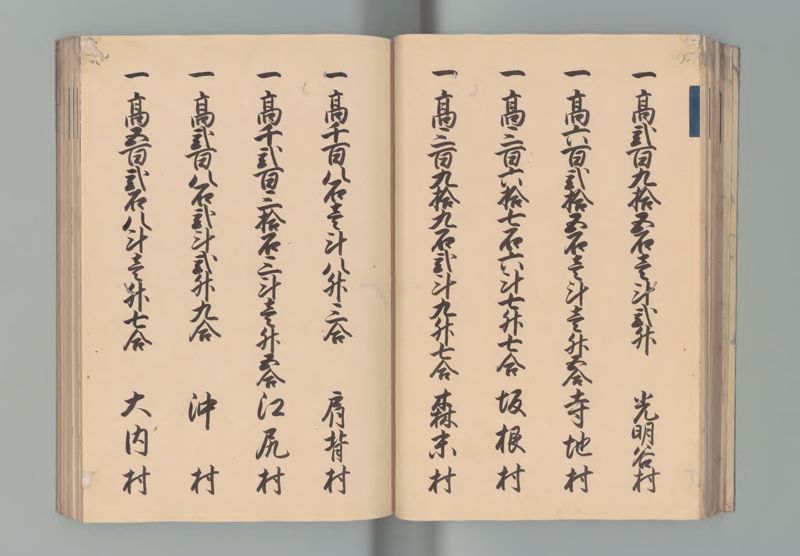 一高弐百九拾五石壱斗弐升 光明谷村
一高六百弐拾五石壱斗壱升五合 寺地村
一高三百六拾七石六斗七升七合 坂根村
一高三百九拾九石弐斗九升七合 森末村
一高千百八石壱斗八升三合 肩背村
一高千弐百三拾石三斗壱升五合 江尻村
一高弐百八石弐斗弐升九合 沖村
一高五百弐石八斗壱升七合 大内村